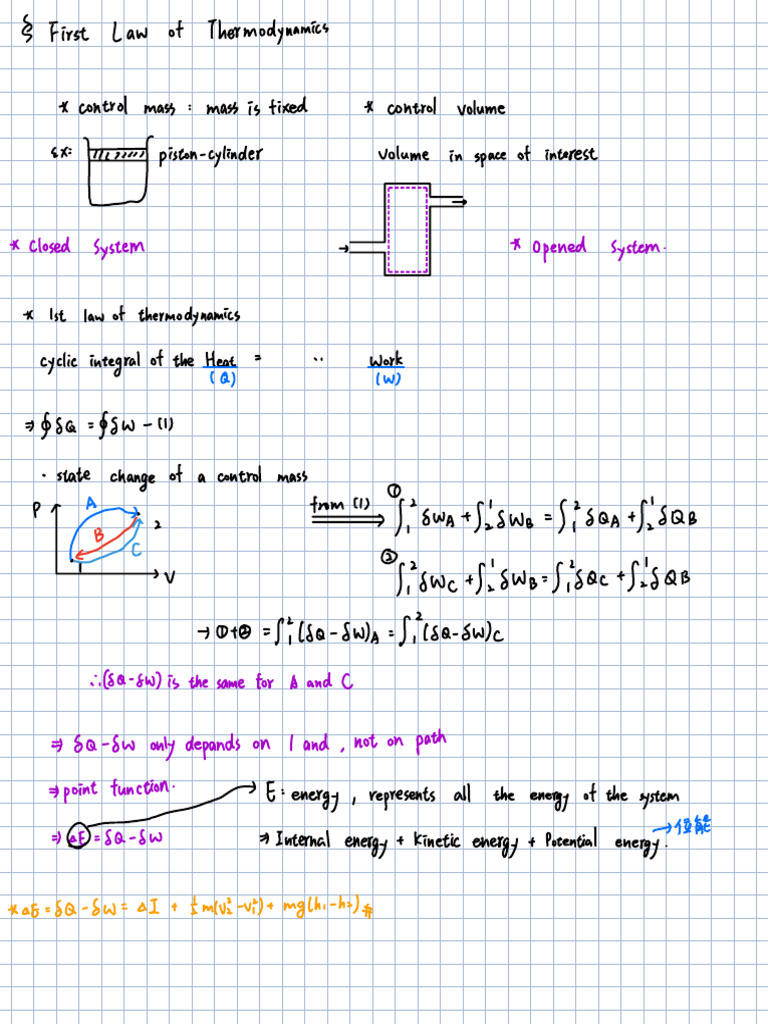 § First Law of Thermodynamics
* control mass : mass is fixed
* control volume
ex: piston-cylinder
volume in space of interest
* Closed System
* Opened System.
* 1st law of thermodynamics
cyclic integral of the Heat = ·· Work
(Q) (W)
⇒ ∮δQ = ∮δW - (1)
· state change of a control mass
P
A
B
C
2
1
V
from (1)
① ∫₁² δWA + ∫₂¹ δWB = ∫₁² δQA + ∫₂¹ δQB
② ∫₁² δWC + ∫₂¹ δWB = ∫₁² δQC + ∫₂¹ δQB
→ ①+② = ∫₁² (δQ-δW)A = ∫₁² (δQ-δW)C
∴(δQ-δW) is the same for A and C
⇒ δQ-δW only depands on 1 and , not on path
⇒ point function.
E: energy, represents all the energy of the system
⇒ ΔE = δQ-δW
⇒ Internal energy + Kinetic energy + Potential energy. → 位能
* ΔE = δQ - δW = ΔI + ½m(V₂²-V₁²) + mg(h₁-h₂) #